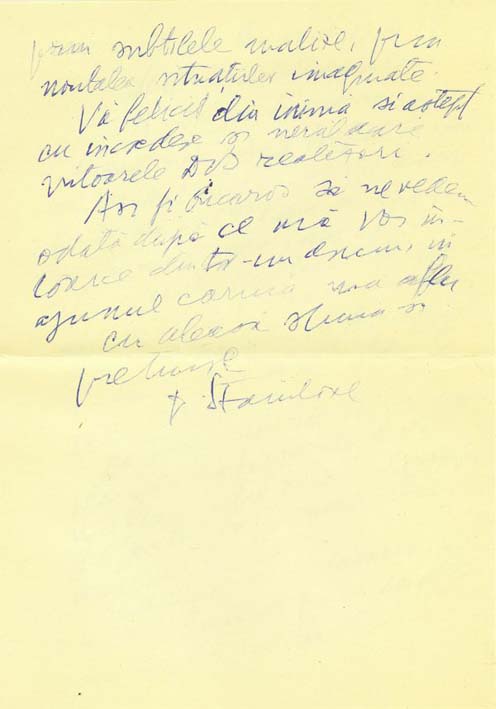 prin subtilele analize, prin
noutatea situațiilor imaginate.
Vă felicit din inimă și aștept
cu încredere și nerăbdare
viitoarele Dvs realizări.
Aș fi bucuros să ne vedem
odată după ce mă voi în-
toarce dintr-un drum, în
ajunul căruia mă aflu
cu aleasă stimă și
prețuire
D. Stăniloae